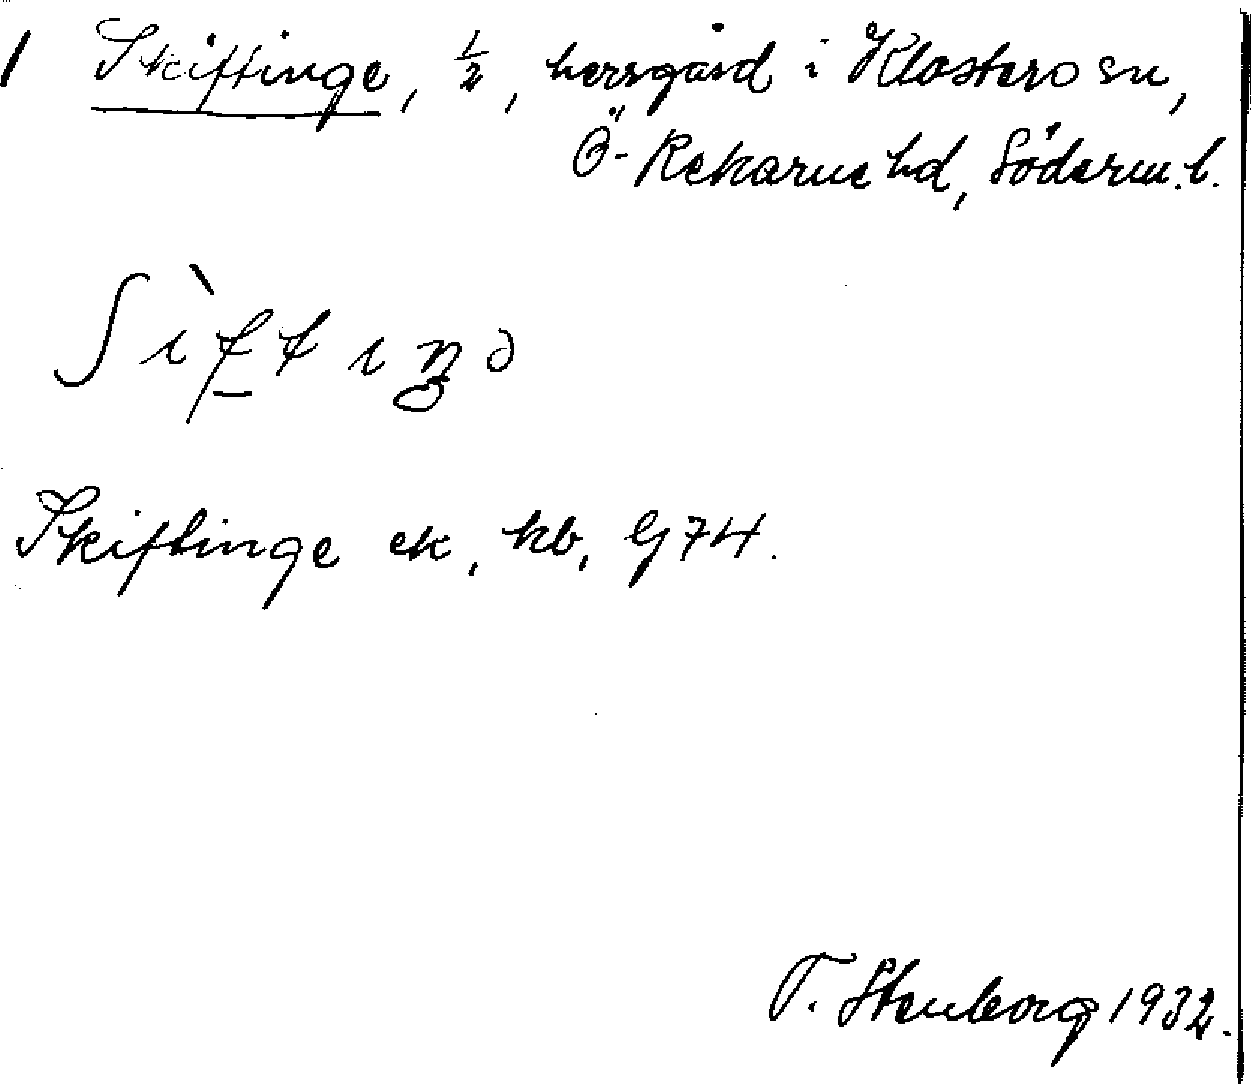 1 Skiftinge, 1/2, herrgård i Klosters sn,
Ö-Rekarne hd, Söderm. l.
ʃìftɪŋə
Skiftinge ek, kb, G 74.
T. Stenborg 1932.